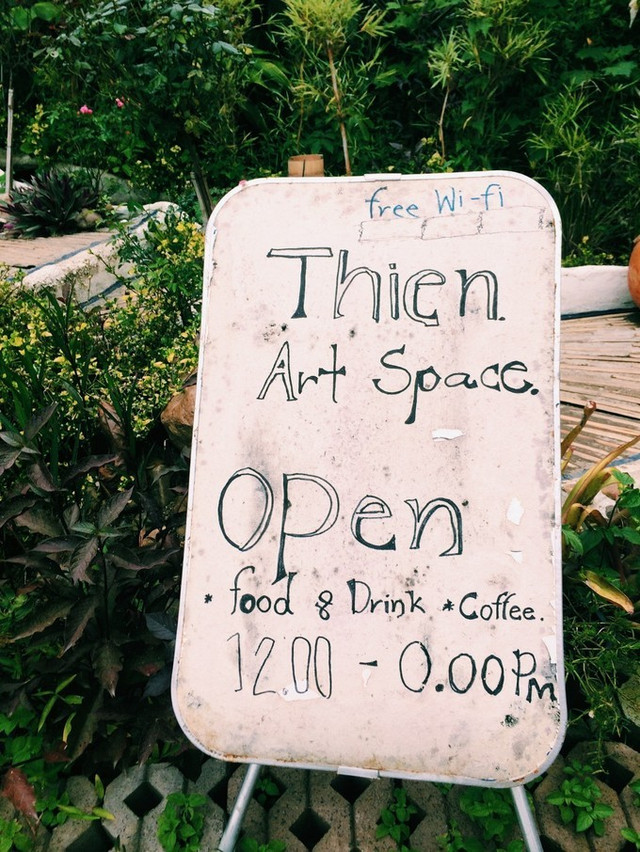 free Wi-fi
Thien.
Art Space.
Open
* food & Drink * Coffee.
12.00 - 0.00 PM